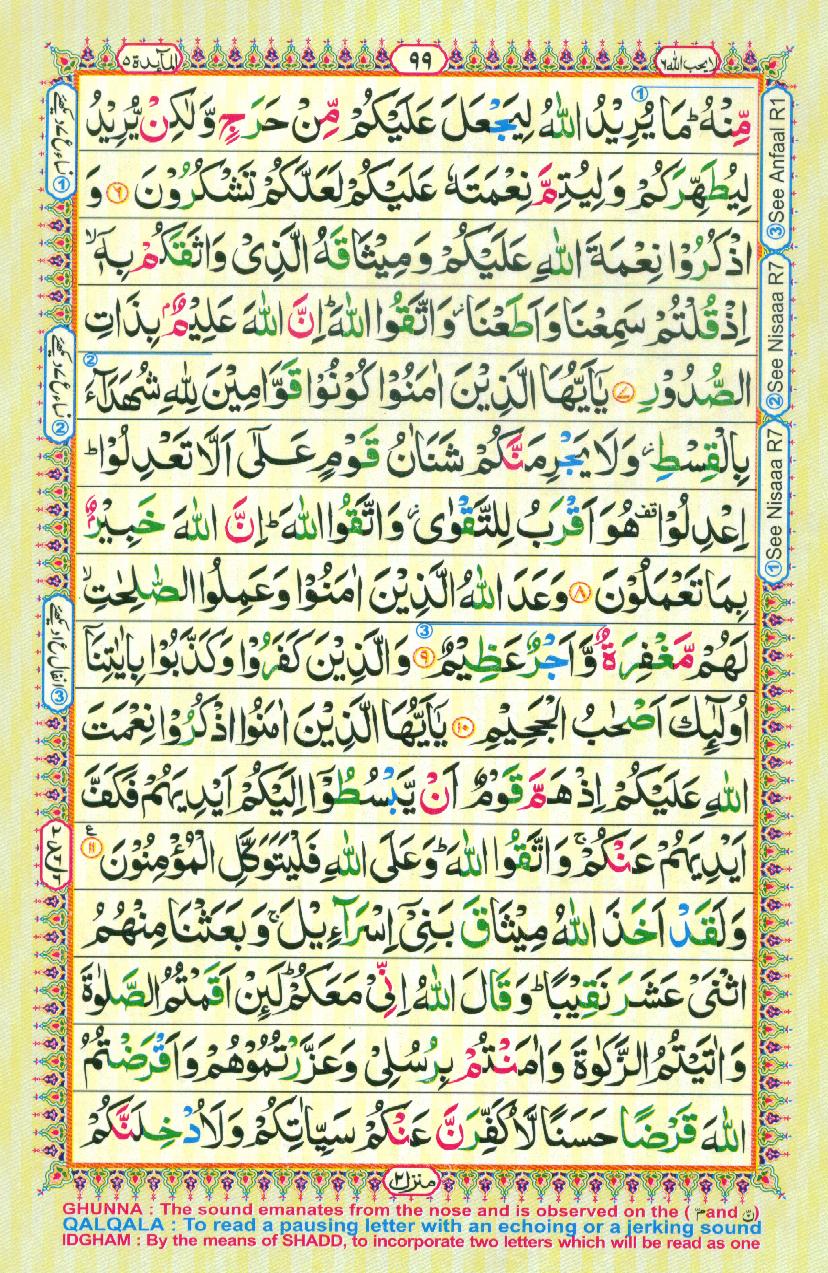 لا يحب الله ٦
٩٩
المآئدة ٥
مِّنْهُ ؕ مَا يُرِيْدُ اللّٰهُ لِيَجْعَلَ عَلَيْكُمْ مِّنْ حَرَجٍ وَّلٰكِنْ يُّرِيْدُ
لِيُطَهِّرَكُمْ وَلِيُتِمَّ نِعْمَتَهٗ عَلَيْكُمْ لَعَلَّكُمْ تَشْكُرُوْنَ ﴿٦﴾ وَ
اذْكُرُوْا نِعْمَةَ اللّٰهِ عَلَيْكُمْ وَمِيْثَاقَهُ الَّذِيْ وَاثَقَكُمْ بِهٖۤ ۙ
اِذْ قُلْتُمْ سَمِعْنَا وَاَطَعْنَا ۫ وَاتَّقُوا اللّٰهَ ؕ اِنَّ اللّٰهَ عَلِيْمٌۢ بِذَاتِ
الصُّدُوْرِ ﴿٧﴾ يٰۤاَيُّهَا الَّذِيْنَ اٰمَنُوْا كُوْنُوْا قَوّٰمِيْنَ لِلّٰهِ شُهَدَآءَ
بِالْقِسْطِ ۫ وَلَا يَجْرِمَنَّكُمْ شَنَاٰنُ قَوْمٍ عَلٰۤى اَلَّا تَعْدِلُوْا ؕ
اِعْدِلُوْا ۫ قف هُوَ اَقْرَبُ لِلتَّقْوٰى ۫ وَاتَّقُوا اللّٰهَ ؕ اِنَّ اللّٰهَ خَبِيْرٌۢ
بِمَا تَعْمَلُوْنَ ﴿٨﴾ وَعَدَ اللّٰهُ الَّذِيْنَ اٰمَنُوْا وَعَمِلُوا الصّٰلِحٰتِ ۙ
لَهُمْ مَّغْفِرَةٌ وَّاَجْرٌ عَظِيْمٌ ﴿٩﴾ وَالَّذِيْنَ كَفَرُوْا وَكَذَّبُوْا بِاٰيٰتِنَاۤ
اُولٰٓئِكَ اَصْحٰبُ الْجَحِيْمِ ﴿١٠﴾ يٰۤاَيُّهَا الَّذِيْنَ اٰمَنُوا اذْكُرُوْا نِعْمَتَ
اللّٰهِ عَلَيْكُمْ اِذْ هَمَّ قَوْمٌ اَنْ يَّبْسُطُوْۤا اِلَيْكُمْ اَيْدِيَهُمْ فَكَفَّ
اَيْدِيَهُمْ عَنْكُمْ ۚ وَاتَّقُوا اللّٰهَ ؕ وَعَلَى اللّٰهِ فَلْيَتَوَكَّلِ الْمُؤْمِنُوْنَ ﴿١١﴾
وَلَقَدْ اَخَذَ اللّٰهُ مِيْثَاقَ بَنِيْۤ اِسْرَآءِيْلَ ۚ وَبَعَثْنَا مِنْهُمُ
اثْنَيْ عَشَرَ نَقِيْبًا ؕ وَقَالَ اللّٰهُ اِنِّيْ مَعَكُمْ ؕ لَئِنْ اَقَمْتُمُ الصَّلٰوةَ
وَاٰتَيْتُمُ الزَّكٰوةَ وَاٰمَنْتُمْ بِرُسُلِيْ وَعَزَّرْتُمُوْهُمْ وَاَقْرَضْتُمُ
اللّٰهَ قَرْضًا حَسَنًا لَّاُكَفِّرَنَّ عَنْكُمْ سَيِّاٰتِكُمْ وَلَاُدْخِلَنَّكُمْ
منزل ٢
③See Anfaal R1
②See Nisaaa R7
①See Nisaaa R7
GHUNNA : The sound emanates from the nose and is observed on the ( مّ and نّ )
QALQALA : To read a pausing letter with an echoing or a jerking sound
IDGHAM : By the means of SHADD, to incorporate two letters which will be read as one